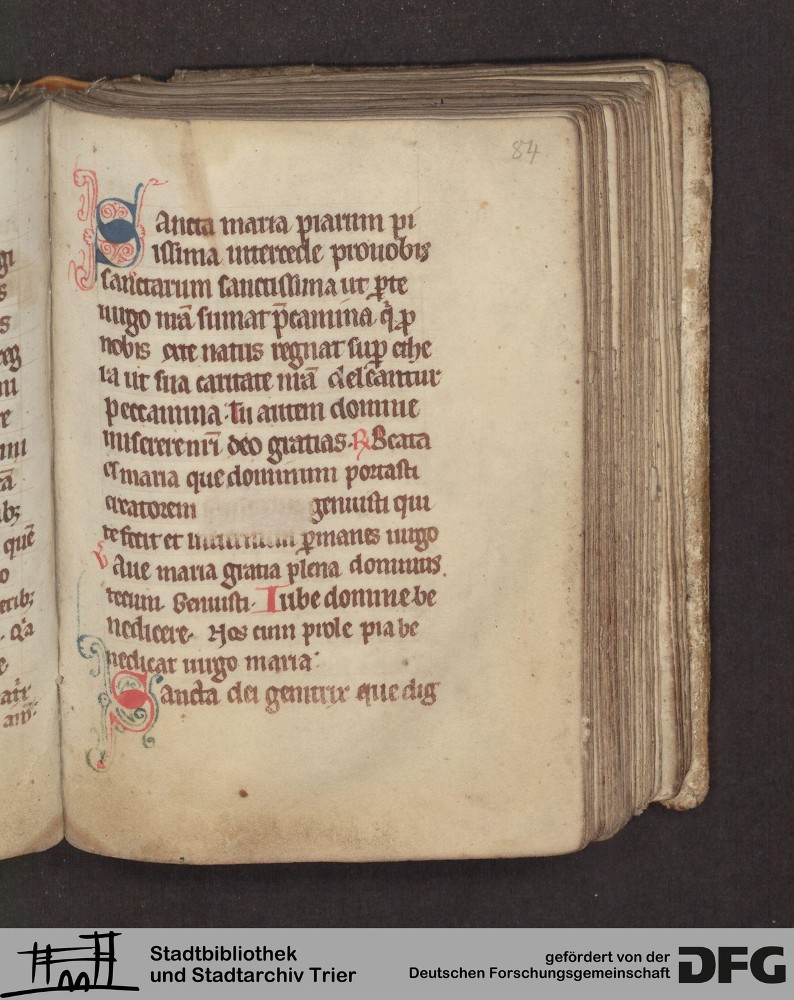 84
Sancta maria piarum pi
issima intercede pro nobis
sanctarum sanctissima ut ꝑ te
uirgo nr̄ā sumat p̄camina q̄ ꝓ
nobis ex te natus regnat suꝑ ethe
ra ut sua caritate nr̄ā deleantur
peccamina. Tu autem domine
miserere nr̄i deo gratias. ℞ Beata
es maria que dominum portasti
creatorem genuisti qui
te fecit et ꝑmanes uirgo
Aue maria gratia plena dominus
tecum. Genuisti. Iube domine be
nedicere. Nos cum prole pia be
nedicat uirgo maria.
Sancta dei genitrix que dig
gi
s
s
reg
re
ā
ib;
quē
o
. Qͣa
e
Stadtbibliothek
und Stadtarchiv Trier
gefördert von der
Deutschen Forschungsgemeinschaft
DFG